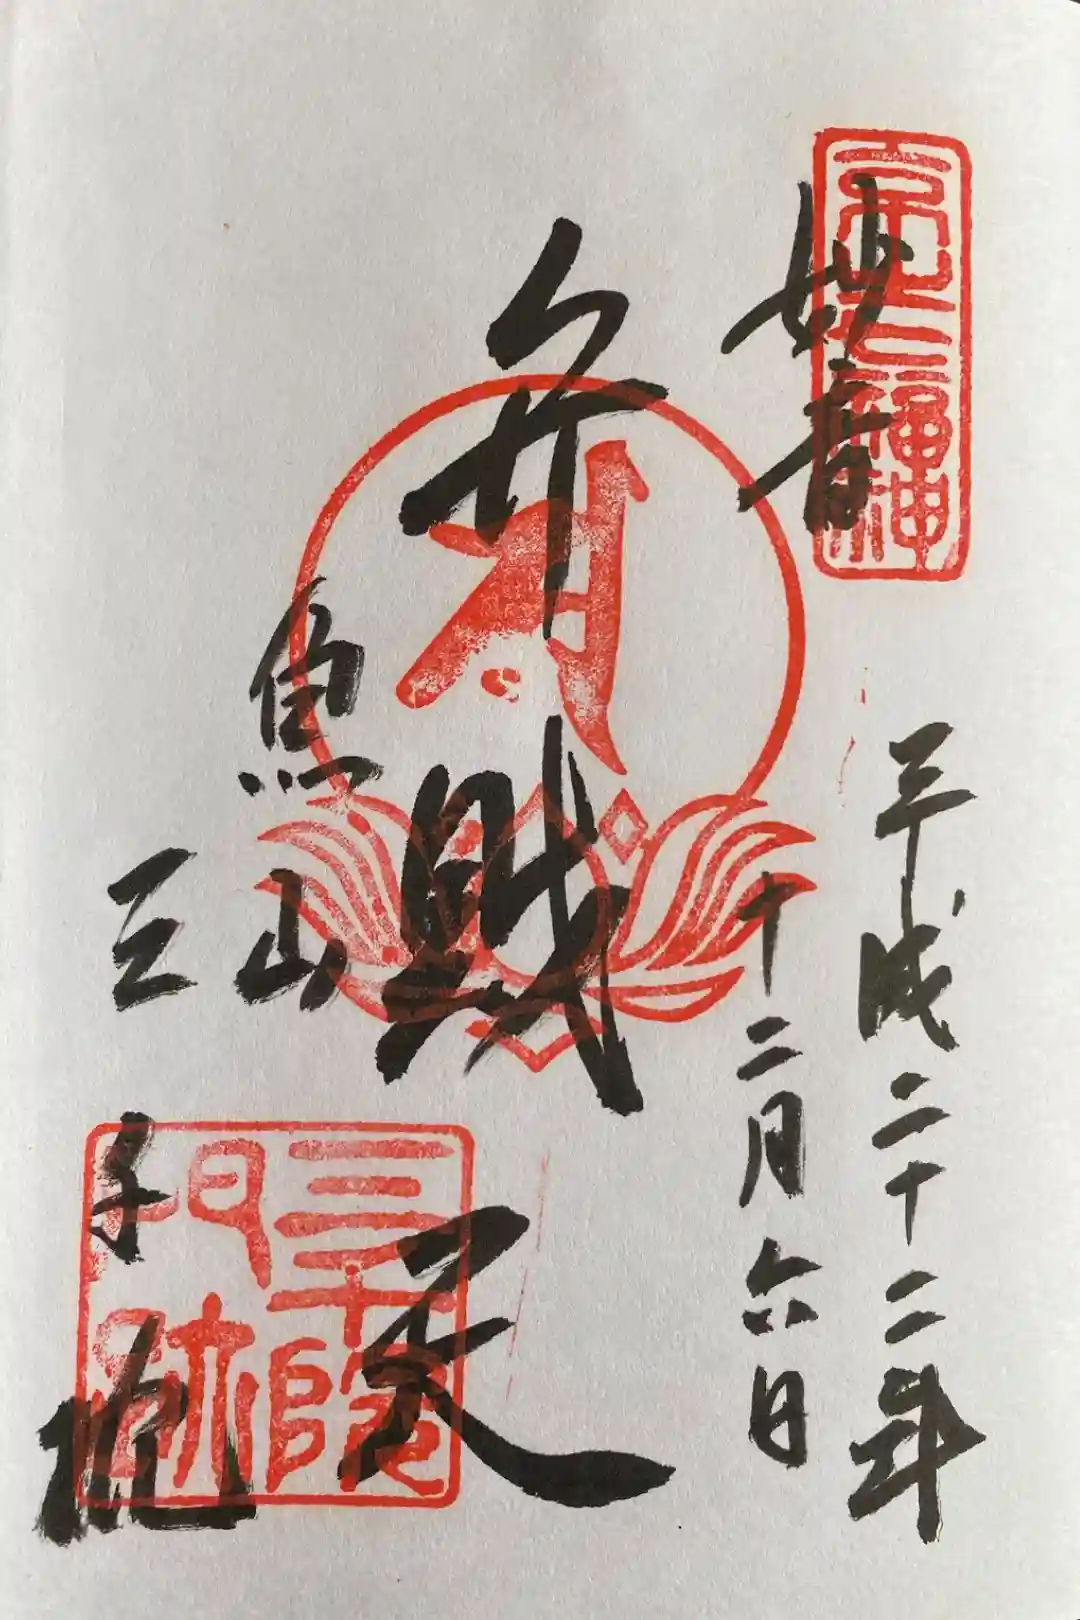 京之七福神
妙音
平成二十二年
十二月六日
弁財天
魚山
三千院
三千院
門跡